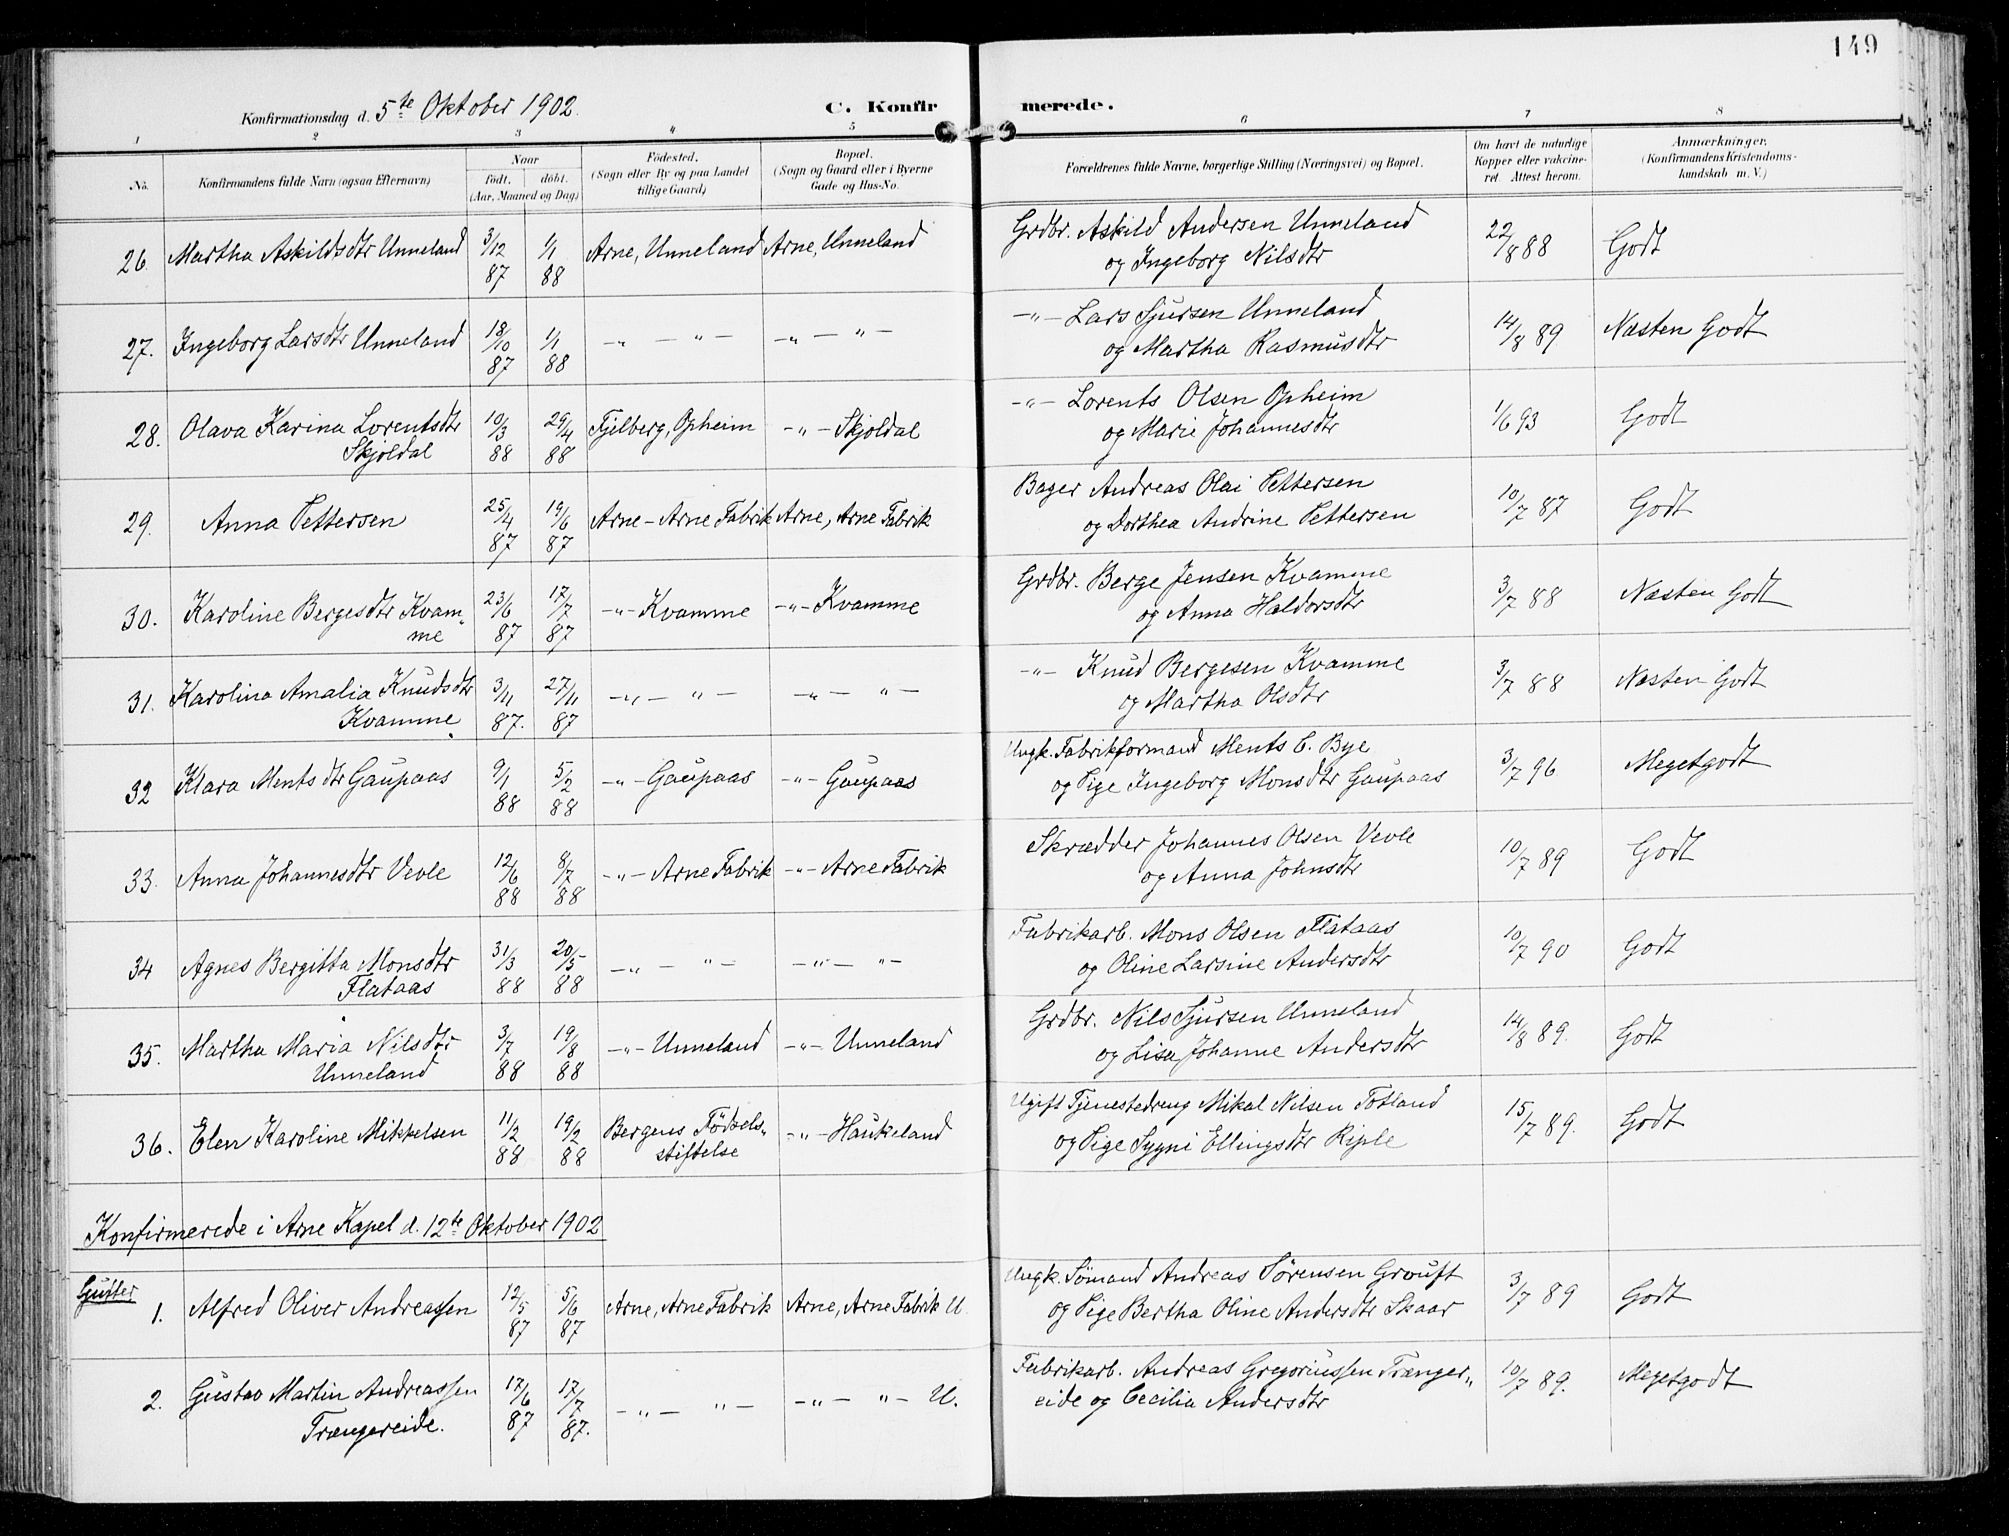 149
Konfirmationsdag d. 5te Oktober 1902. C. Konfirmerede.
1 2 3 4 5 6 7 8
No. Konfirmandens fulde Navn (ogsaa Efternavn) Naar født. døbt. (Aar, Maaned og Dag) Fødested. (Sogn eller By og paa Landet tillige Gaard) Bopæl. (Sogn og Gaard eller i Byerne Gade og Hus-No. Forældrenes fulde Navne, borgerlige Stilling (Næringsvei) og Bopæl. Om havt de naturlige Kopper eller vakcineret. Attest herom. Anmærkninger. (Konfirmandens Kristendomskundskab m. V.)
26. Martha Askildsdtr Unneland 3/12 87 1/1 88 Arne, Unneland Arne, Unneland Grdbr. Askild Andersen Unneland og Ingeborg Nilsdtr 22/8 88 Godt
27. Ingeborg Larsdtr Unneland 18/10 87 1/1 88 -„- „- -„- „- -„- Lars Sjursen Unneland og Martha Rasmusdtr 14/8 89 Næsten Godt
28. Olava Karina Lorentsdtr Skjoldal 10/3 88 29/4 88 Fjelberg, Opheim -„- Skjoldal -„- Lorents Olsen Opheim og Marie Johannesdtr 1/6 93 Godt
29. Anna Pettersen 25/4 87 19/6 87 Arne - Arne Fabrik Arne, Arne Fabrik Bager Andreas Olai Pettersen og Dorthea Andrine Pettersen 10/7 87 Godt
30. Karoline Bergesdtr Kvamme 23/6 87 17/7 87 -„- Kvamme -„- Kvamme Grdbr. Berge Jensen Kvamme og Anna Haldorsdtr 3/7 88 Næsten Godt
31. Karolina Amalia Knudsdtr Kvamme 3/11 87. 27/11 87 -„- „- -„- „- -„- Knud Bergesen Kvamme og Martha Olsdtr 3/7 88 Næsten Godt
32 Klara Mentsdtr Gaupaas 9/1 88 5/2 88 -„- Gaupaas -„- Gaupaas Ungk. Fabrikformand Ments C. Bye og Pige Ingeborg Monsdtr Gaupaas 3/7 96 Megetgodt
33. Anna Johannesdtr Vevle 12/6 88 8/7 88 -„- Arne Fabrik -„- Arne Fabrik Skrædder Johannes Olsen Vevle og Anna Johnsdtr 10/7 89 Godt
34 Agnes Bergitta Monsdtr Flataas 31/3 88 20/5 88 -„- „- -„- „- Fabrikarb. Mons Olsen Flataas og Oline Larsine Andersdtr 10/7 90 Godt
35. Martha Maria Nilsdtr Unneland 3/7 88 19/8 88 -„- Unneland -„- Unneland Grdbr. Nils Sjursen Unneland og Lisa Johanne Andersdtr 14/8 89. Godt
36. Elen Karoline Mikkelsen 11/2 88 19/2 88 Bergens Födsels„ stiftelse -„- Haukeland Ugift Tjenestedreng Mikal Nilsen Totland og Pige Sygni Ellingsdtr Riple 15/7 89. Godt
Konfirmerede i Arne Kapel d. 12te Oktober 1902
Gutter
1. Alfred Oliver Andreassen 12/5 87 5/6 87 Arne, Arne Fabrik Arne, Arne Fabrik U. Ungk. Sömand Andreas Sörensen Grouft og Pige Bertha Oline Andersdtr Skaar 3/7 89 Godt
2. Gustav Martin Andreassen Trængereide. 17/6 87 17/7 87. -„- „- -„- „- U. Fabrikarb. Andreas Gregoriussen Trænger„ eide og Cecilia Andersdtr 10/7 89. Megetgodt